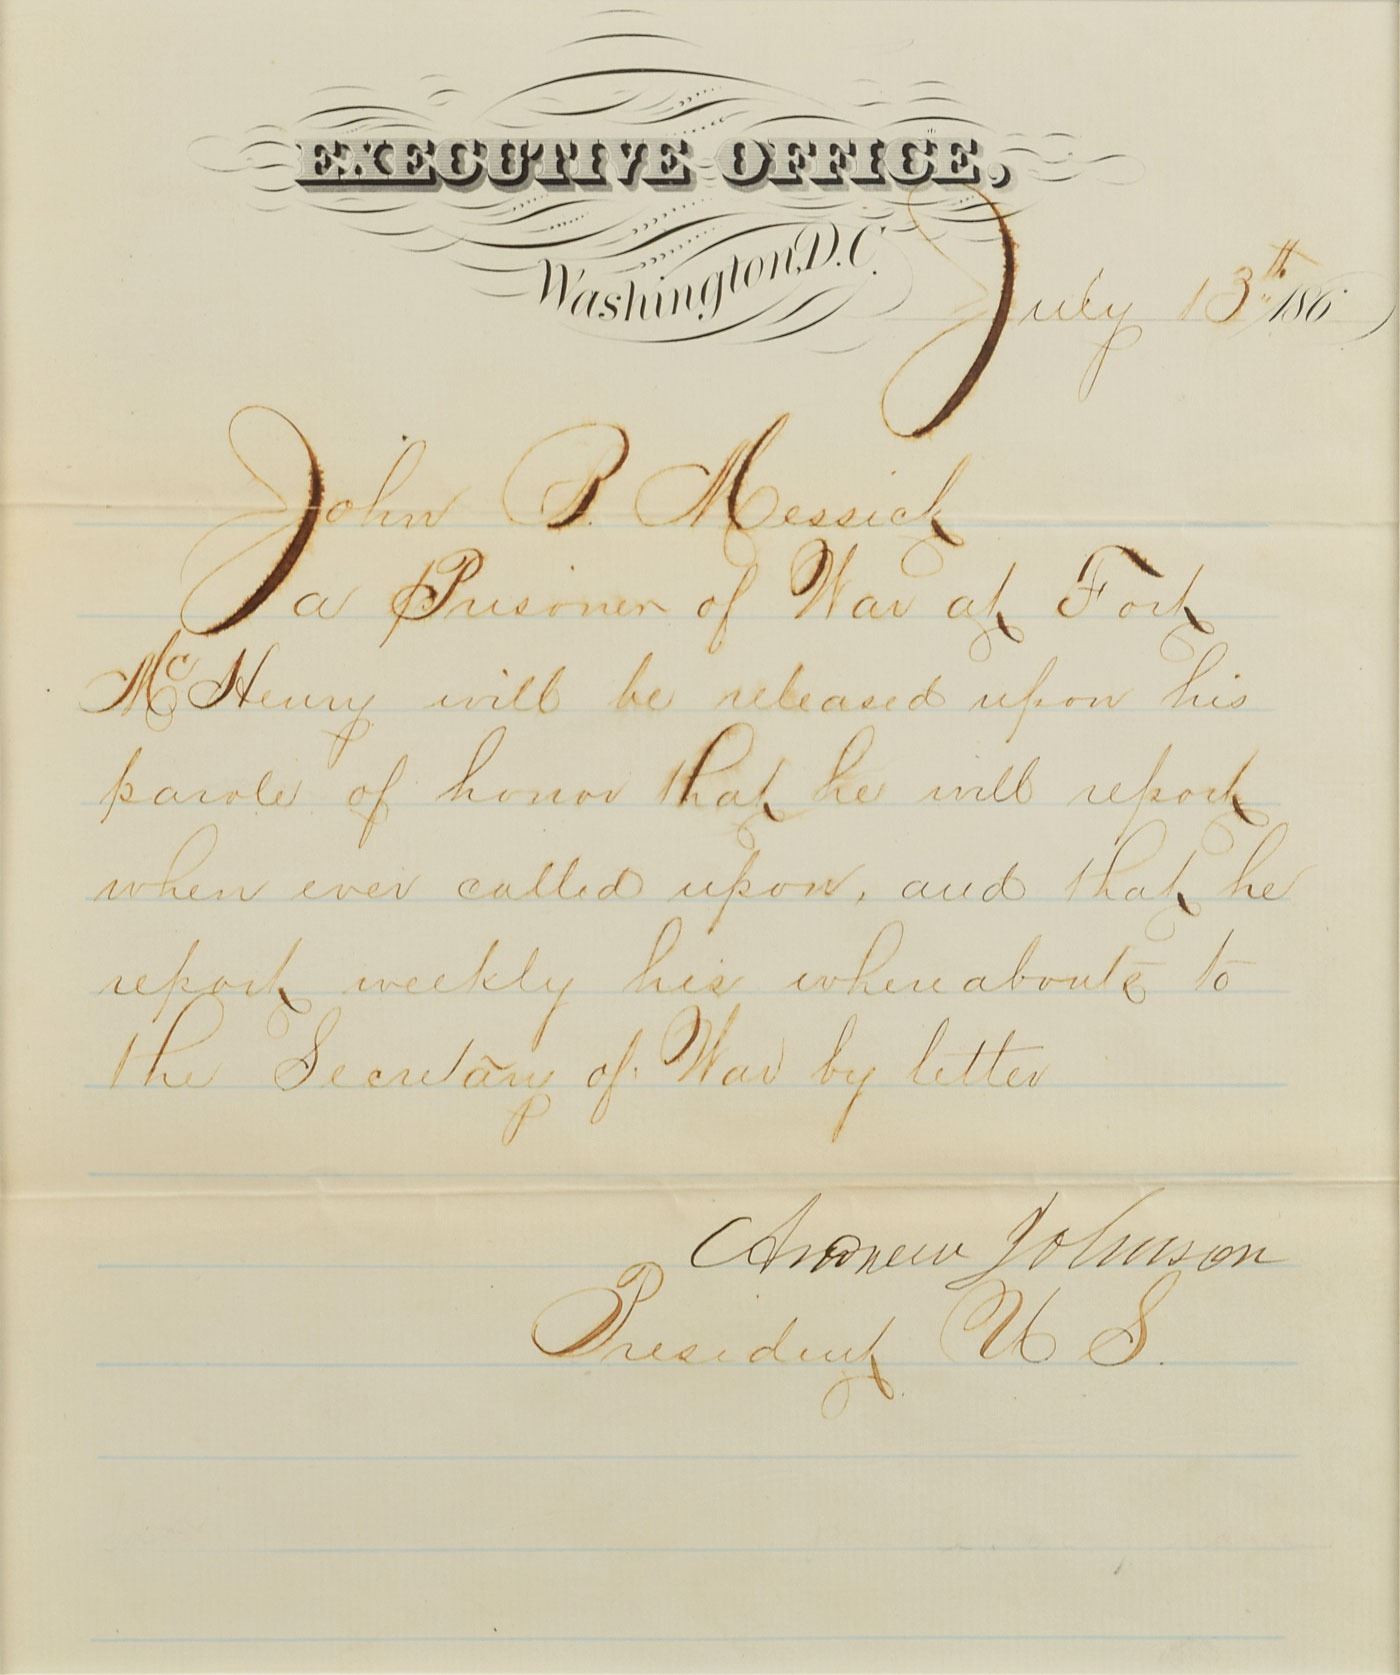 EXECUTIVE OFFICE,
Washington, D.C.
July 13th 186
John B. Messick
a Prisoner of War at Fort
McHenry will be released upon his
parole of honor that he will report
when ever called upon, and that he
report weekly his whereabouts to
the Secretary of War by letter
Andrew Johnson
President U S.